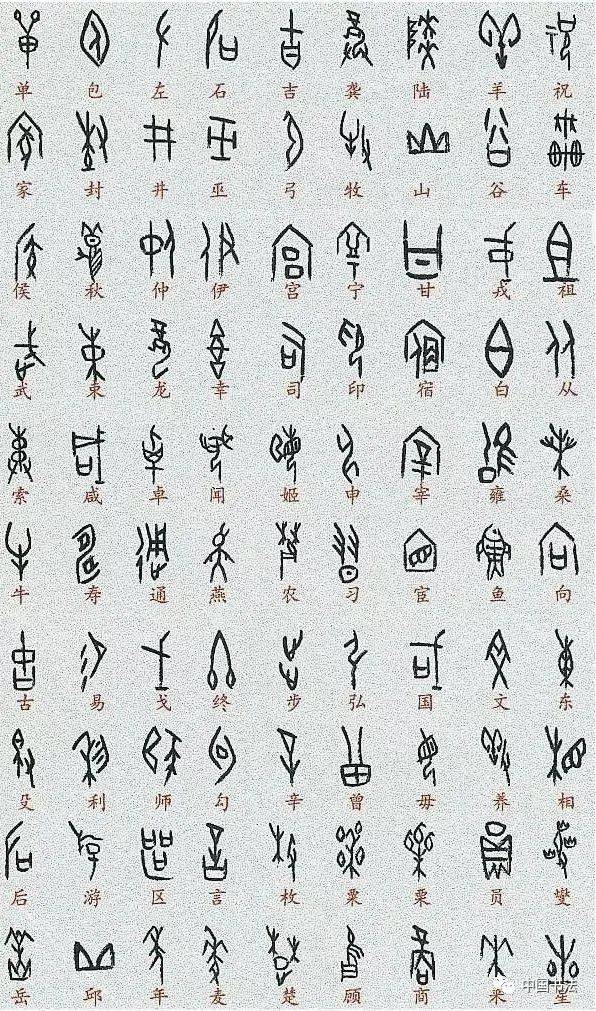 单 包 左 石 吉 龚 陆 羊 祝
家 封 井 巫 弓 牧 山 谷 车
侯 秋 仲 伊 宫 宁 甘 戎 祖
武 束 龙 幸 司 印 宿 白 从
索 咸 卓 闻 姬 申 宰 雍 桑
牛 寿 通 燕 农 习 宦 鱼 向
古 易 戈 终 步 弘 国 文 东
殳 利 师 勾 辛 曾 毋 养 相
后 游 区 言 枚 粟 栗 员 燮
岳 邱 年 麦 楚 顾 商 来 星
中国书法